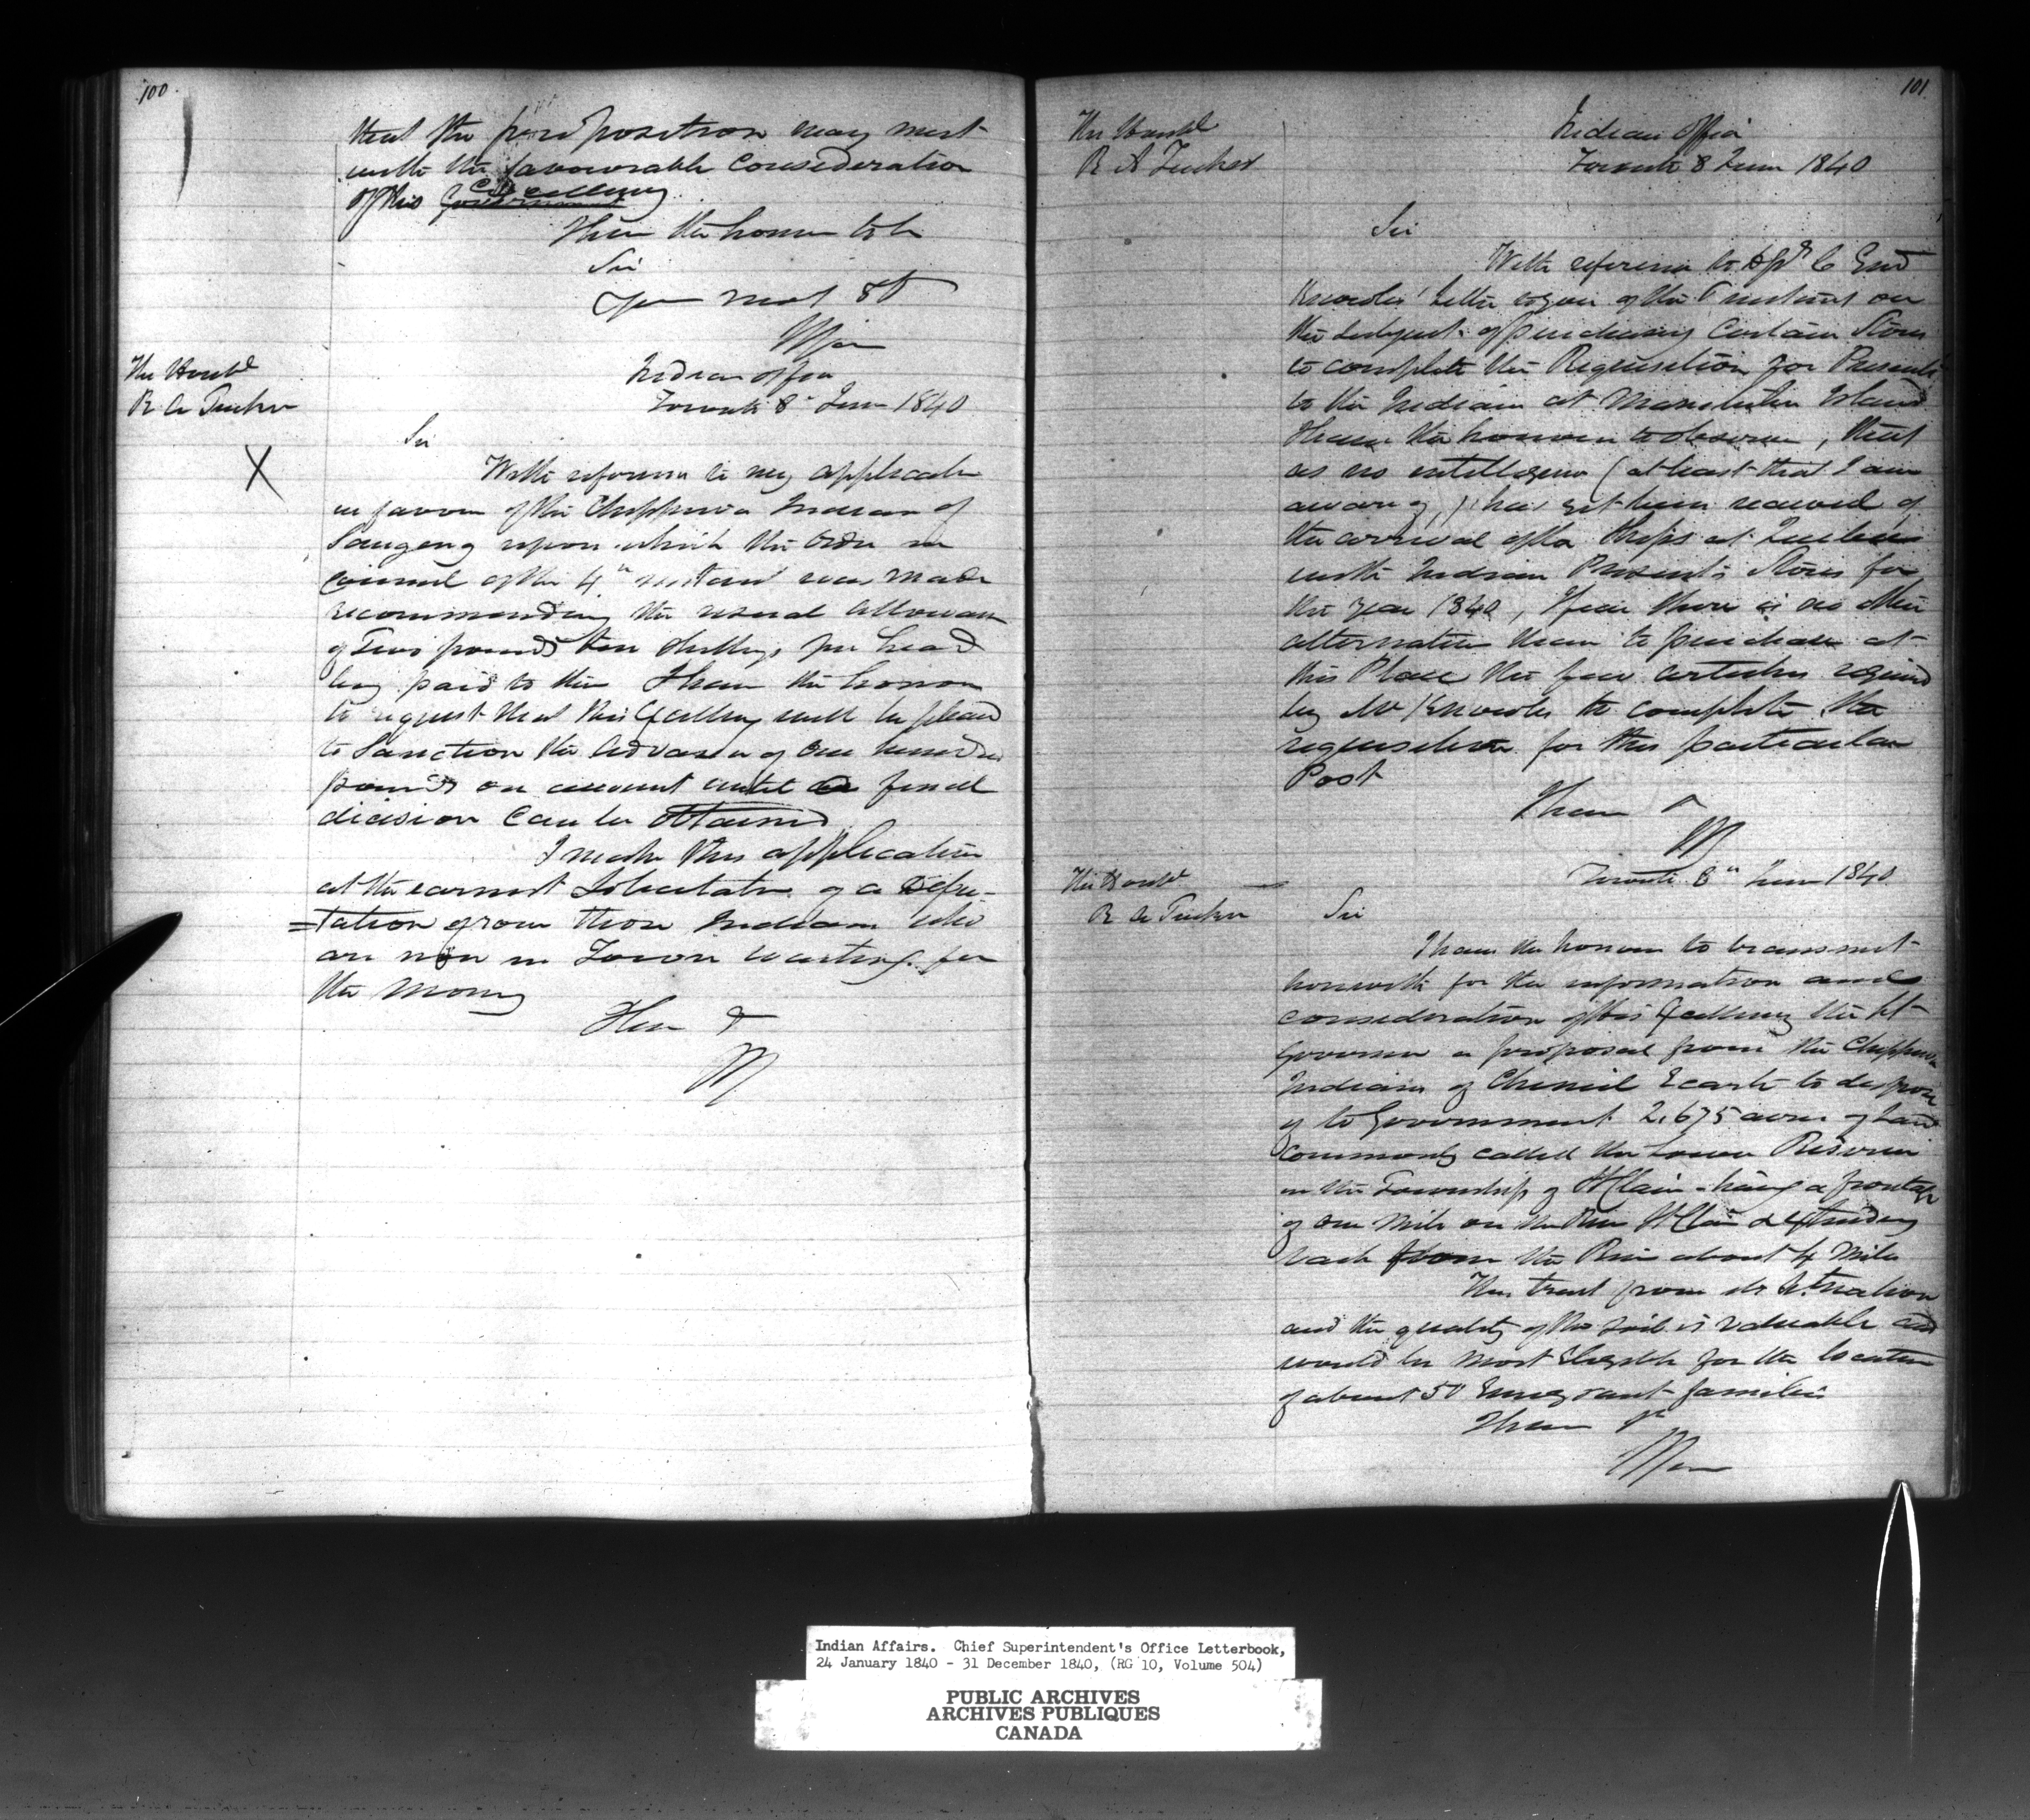 100
that the proposition may meet
with the favourable consideration
of His Excellency Government
I have the honor to be
Sir
Your most Obt
The Honble
R A Tucker
Indian Office
Toronto 8th June 1840
Sir
X
With reference to my application
in favor of the Chippewa Indians of
Saugeeng upon which the Order in
Council of the 4th instant was made
recommending the usual allowance
of Two pounds ten shillings per head
being paid to them I have the honor
to request that His Excellency will be pleased
to sanction the advance of one hundred
pounds on account until a final
decision can be obtained
I make this application
at the earnest solicitation of a depu-
=tation from those Indians who
are now in Town waiting for
the money
I have &
101
The Honble
R A Tucker
Indian Office
Toronto 8 June 1840
Sir
With reference to C Genl
Knowles' letter to you of the instant on
the subject of purchasing certain Stores
to complete the Requisition for Presents
to the Indians at Manitoulin Island
I have the honour to observe, that
as no intelligence (at least that I am
aware of,) has yet been received of
the arrival of the Ships at Quebec
with Indian Presents Stores for
the year 1840, I fear there is no other
alternative than to purchase at
this Place the few articles required
by Mr Knowles to complete the
requisition for this particular
Post
I have &
The Honble
R A Tucker
Toronto 8th June 1840
Sir
I have the honour to transmit
herewith for the information and
consideration of His Excellency the Lt
Governor a proposal from the Chippewa
Indians of Chenail Ecarte to dispose
of to Government 2,675 acres of Land
commonly called the Lower Reserve
in the Township of St Clair having a frontage
of one mile on the River St Clair & extending
back from the River about 4 miles
This tract from its situation
and the quality of the soil is valuable and
would be most eligible for the location
of about 50 Emigrant families
I have &c
Indian Affairs. Chief Superintendent's Office Letterbook,
24 January 1840 - 31 December 1840, (RG 10, Volume 504)
PUBLIC ARCHIVES
ARCHIVES PUBLIQUES
CANADA